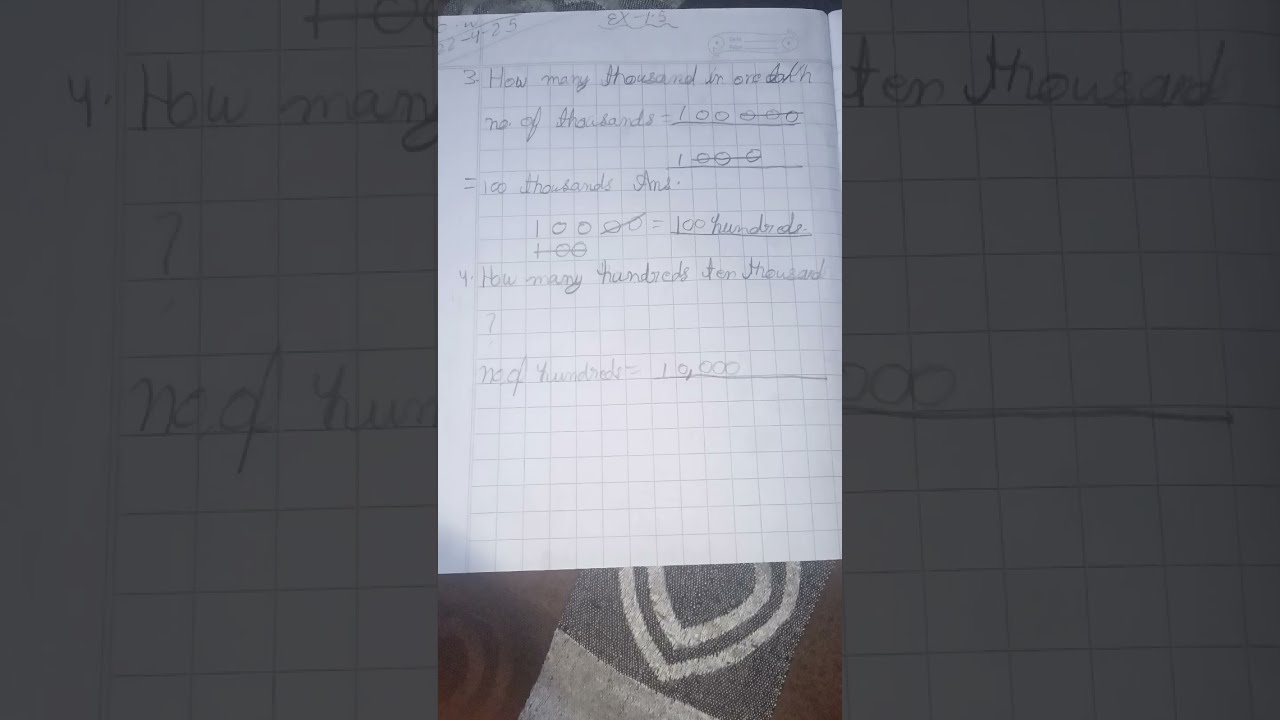 22-4-25
Ex-1.3
3. How many thousand in one lakh
no. of thousands = 100000
1000
= 100 thousands Ans.
10000 = 100 hundreds.
100
4. How many hundreds ten thousand
?
no. of hundreds = 10,000